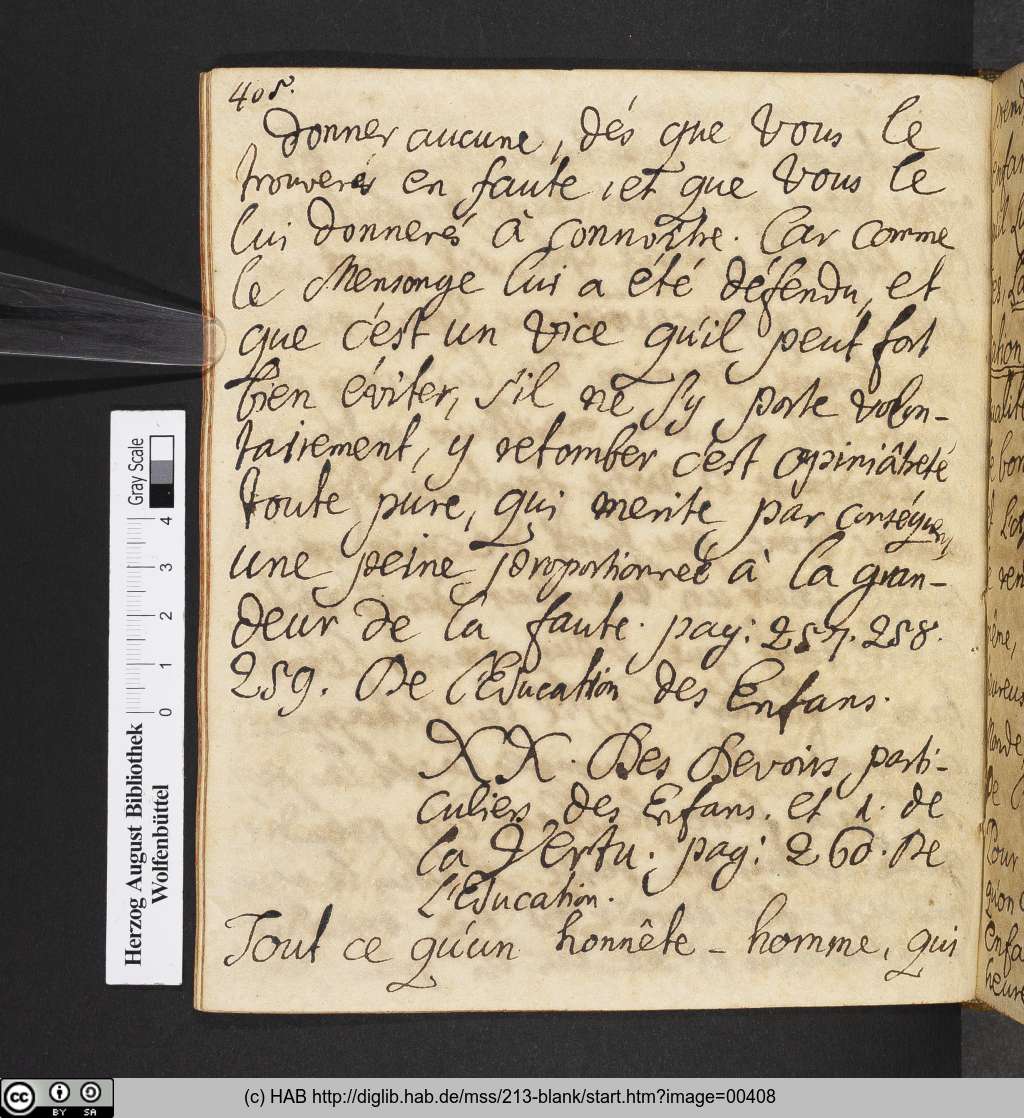 408.
donner aucune, dés que vous le
trouverés en faute, et que vous le
lui donnerés à connoître. Car comme
le Mensonge lui a été défendu, et
que c'est un vice qu'il peut fort
bien éviter, s'il ne s'y porte volon-
tairement, y retomber c'est opiniâtreté
toute pure, qui merite par conséquent
une peine proportionnée à la gran-
deur de la faute. pag: 257. 258.
259. De l'Education des Enfans.
XX. Des Devoirs parti-
culiers des Enfans. et 1. de
la Vertu. pag: 260. De
l'Education.
Tout ce qu'un honnête-homme, qui
Gray Scale
4
3
2
1
0
Herzog August Bibliothek
Wolfenbüttel
cc BY SA
(c) HAB http://diglib.hab.de/mss/213-blank/start.htm?image=00408